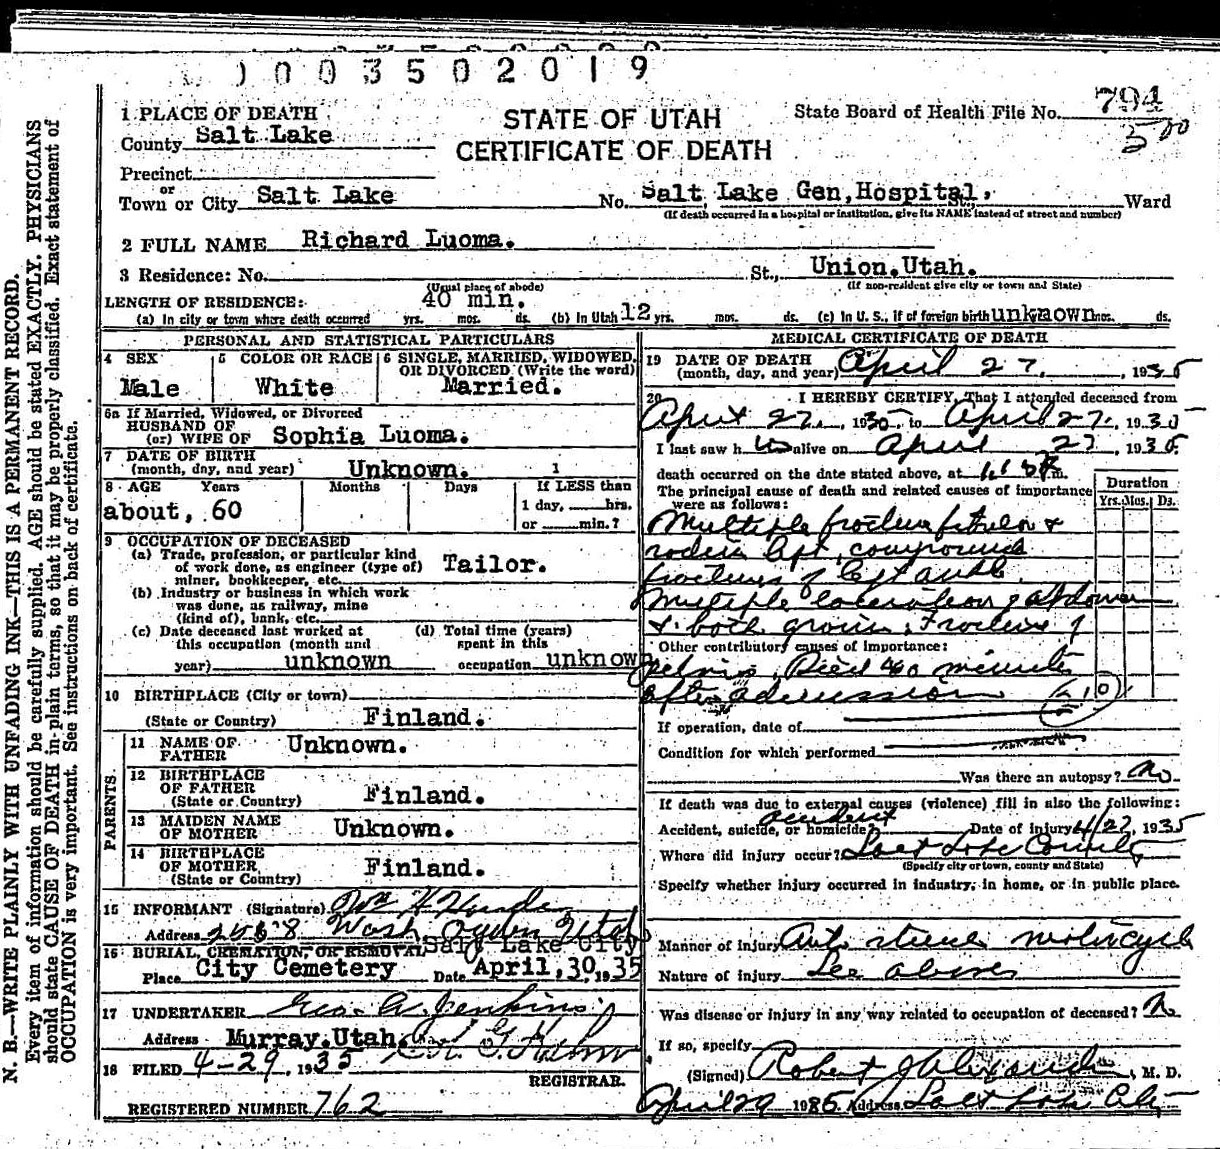 0 0 3 5 0 2 0 1 9
1 PLACE OF DEATH
County Salt Lake
STATE OF UTAH
CERTIFICATE OF DEATH
State Board of Health File No. 794
500
Precinct
or
Town or City Salt Lake No. Salt Lake Gen, Hospital, St., Ward
(If death occurred in a hospital or institution, give its NAME instead of street and number)
2 FULL NAME Richard Luoma.
3 Residence: No. St., Union.Utah.
(Usual place of abode) (If non-resident give city or town and State)
LENGTH OF RESIDENCE: 40 min.
(a) In city or town where death occurred yrs. mos. ds. (b) In Utah 12 yrs. mos. ds. (c) In U. S., if of foreign birth unknown mos. ds.
PERSONAL AND STATISTICAL PARTICULARS
4 SEX
Male
5 COLOR OR RACE
White
6 SINGLE, MARRIED, WIDOWED, OR DIVORCED (Write the word)
Married.
6a If Married, Widowed, or Divorced
HUSBAND OF
(or) WIFE OF Sophia Luoma.
7 DATE OF BIRTH
(month, day, and year) Unknown. 1
8 AGE Years Months Days If LESS than
about, 60 1 day, hrs.
or min.?
9 OCCUPATION OF DECEASED
(a) Trade, profession, or particular kind
of work done, as engineer (type of)
miner, bookkeeper, etc. Tailor.
(b) Industry or business in which work
was done, as railway, mine
(kind of), bank, etc.
(c) Date deceased last worked at
this occupation (month and
year) unknown
(d) Total time (years)
spent in this
occupation unknown
10 BIRTHPLACE (City or town)
(State or Country) Finland.
PARENTS.
11 NAME OF
FATHER Unknown.
12 BIRTHPLACE
OF FATHER
(State or Country) Finland.
13 MAIDEN NAME
OF MOTHER Unknown.
14 BIRTHPLACE
OF MOTHER
(State or Country) Finland.
15 INFORMANT (Signature)
Address Wash. Ogden Utah
16 BURIAL, CREMATION, OR REMOVAL Salt Lake City
Place City Cemetery Date April, 30, 1935
17 UNDERTAKER Geo. A. Jenkins
Address Murray.Utah.
18 FILED 4-29, 1935
REGISTRAR.
REGISTERED NUMBER 762
MEDICAL CERTIFICATE OF DEATH
19 DATE OF DEATH
(month, day, and year) April 27, 1935
20 I HEREBY CERTIFY, That I attended deceased from
April 27, 1935, to April 27, 1935
I last saw h im alive on April 27, 1935
death occurred on the date stated above, at m.
The principal cause of death and related causes of importance
were as follows:
Duration
Yrs. Mos. Ds.
Multiple fracture &
left, compound
fracture of left
Multiple lacerations of abdomen
& both groins. Fracture of
Other contributory causes of importance:
pelvis. Died 40 minutes
after admission 210
If operation, date of
Condition for which performed
Was there an autopsy? No
If death was due to external causes (violence) fill in also the following:
Accident, suicide, or homicide? accident Date of injury 4/27, 1935
Where did injury occur? Salt Lake County
(Specify city or town, county and State)
Specify whether injury occurred in industry, in home, or in public place.
Manner of injury Auto struck motorcycle
Nature of injury See above
Was disease or injury in any way related to occupation of deceased? No
If so, specify
(Signed) Robert J Alexander, M. D.
April 29 1935 Address Salt Lake City
N. B.—WRITE PLAINLY WITH UNFADING INK—THIS IS A PERMANENT RECORD.
Every item of information should be carefully supplied. AGE should be stated EXACTLY. PHYSICIANS
should state CAUSE OF DEATH in plain terms, so that it may be properly classified. Exact statement of
OCCUPATION is very important. See instructions on back of certificate.